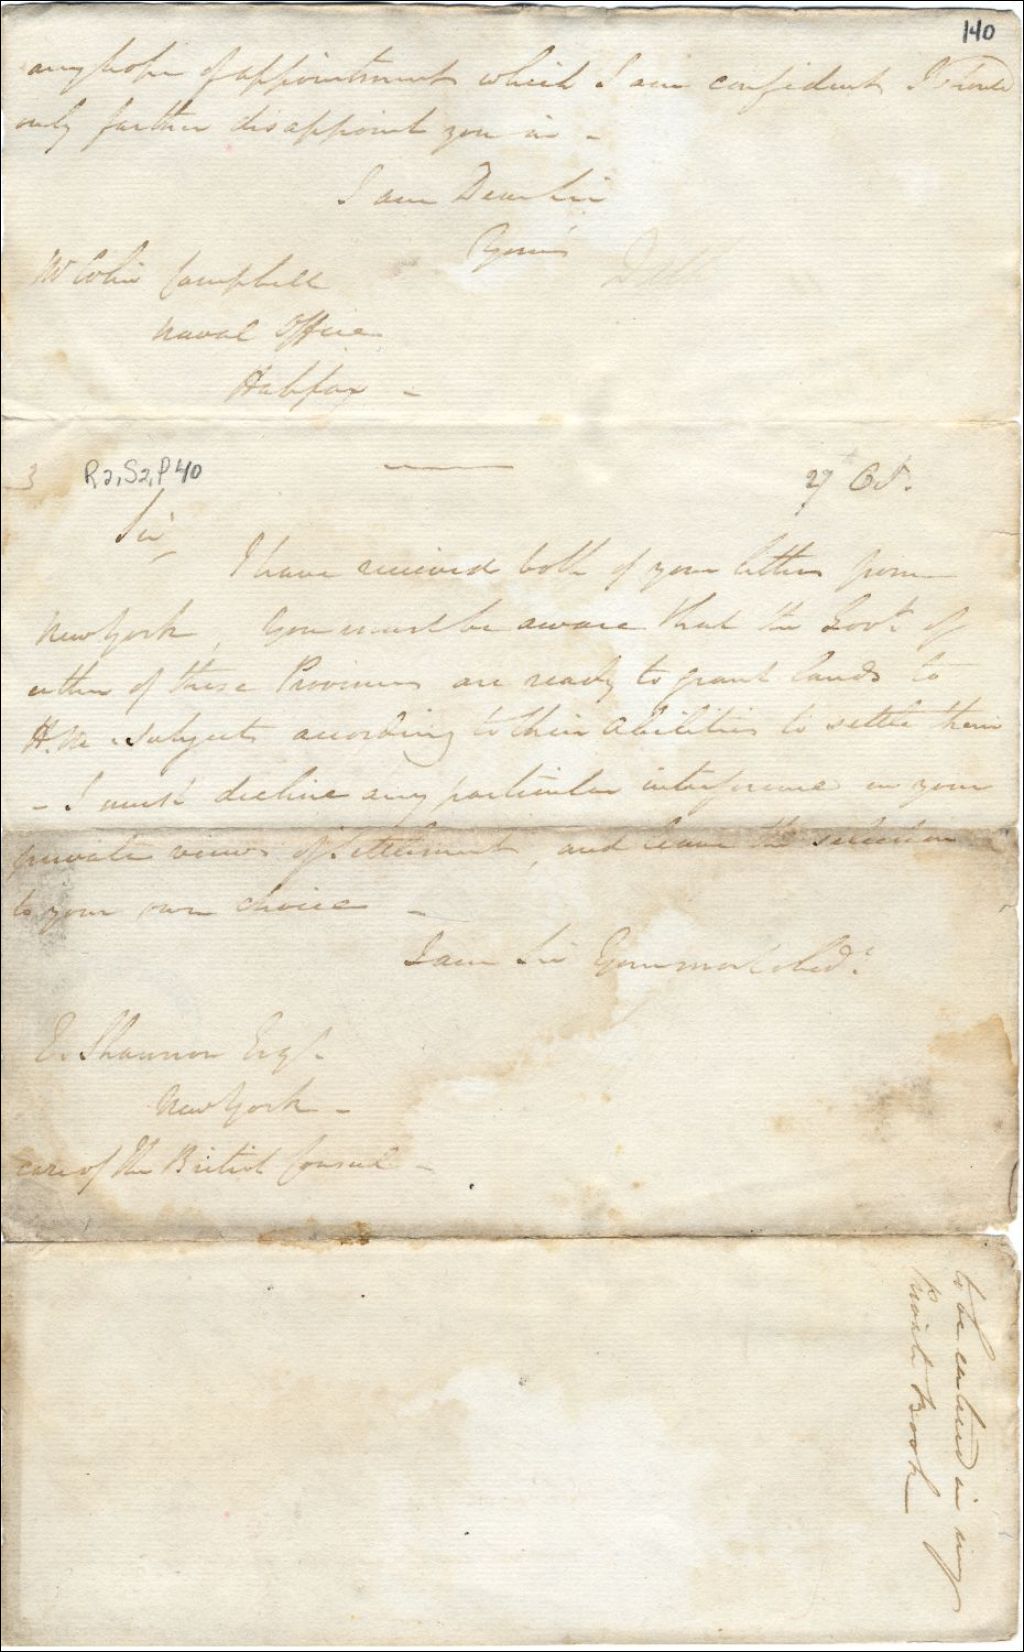 140
any hope of appointment which I am confident I should
only further disappoint you in -
I am Dear Sir
Yours
Mr Colin Campbell
Naval Office
Halifax -
3 R2, S2, P40
27 Oct.
Sir
I have received both of your letters from
New York You must be aware that the Govt. of
either of these Provinces are ready to grant lands to
H.M. subjects according to their abilities to settle them
- I must decline any particular interference in your
private views of settlement, and leave the selection
to your own choice -
I am Sir Your most obedt.
E. Shannon Esqr.
New York -
care of the British Consul -
to be entered in my
private Book